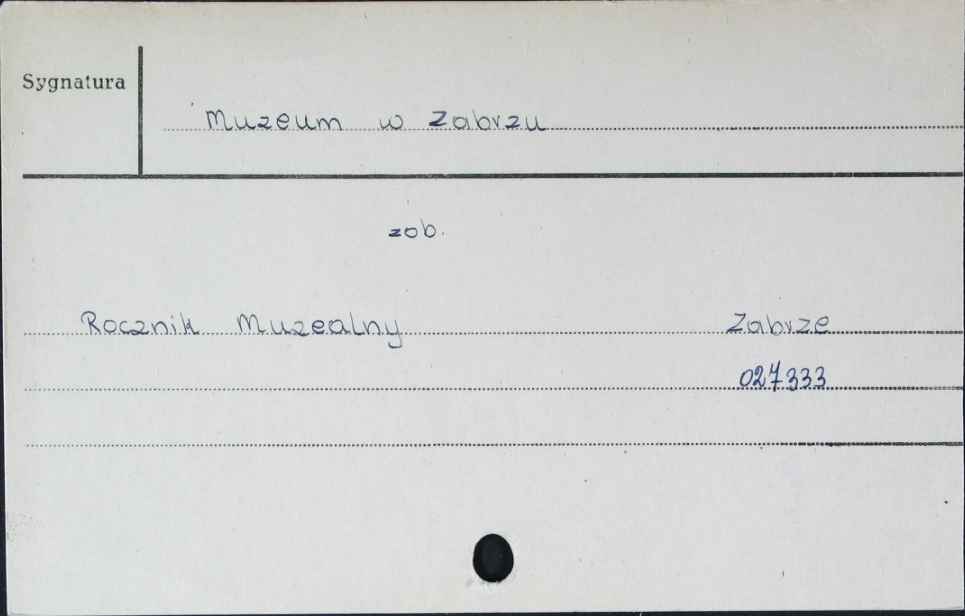 Sygnatura
Muzeum w Zabrzu
zob.
Rocznik Muzealny Zabrze
027333